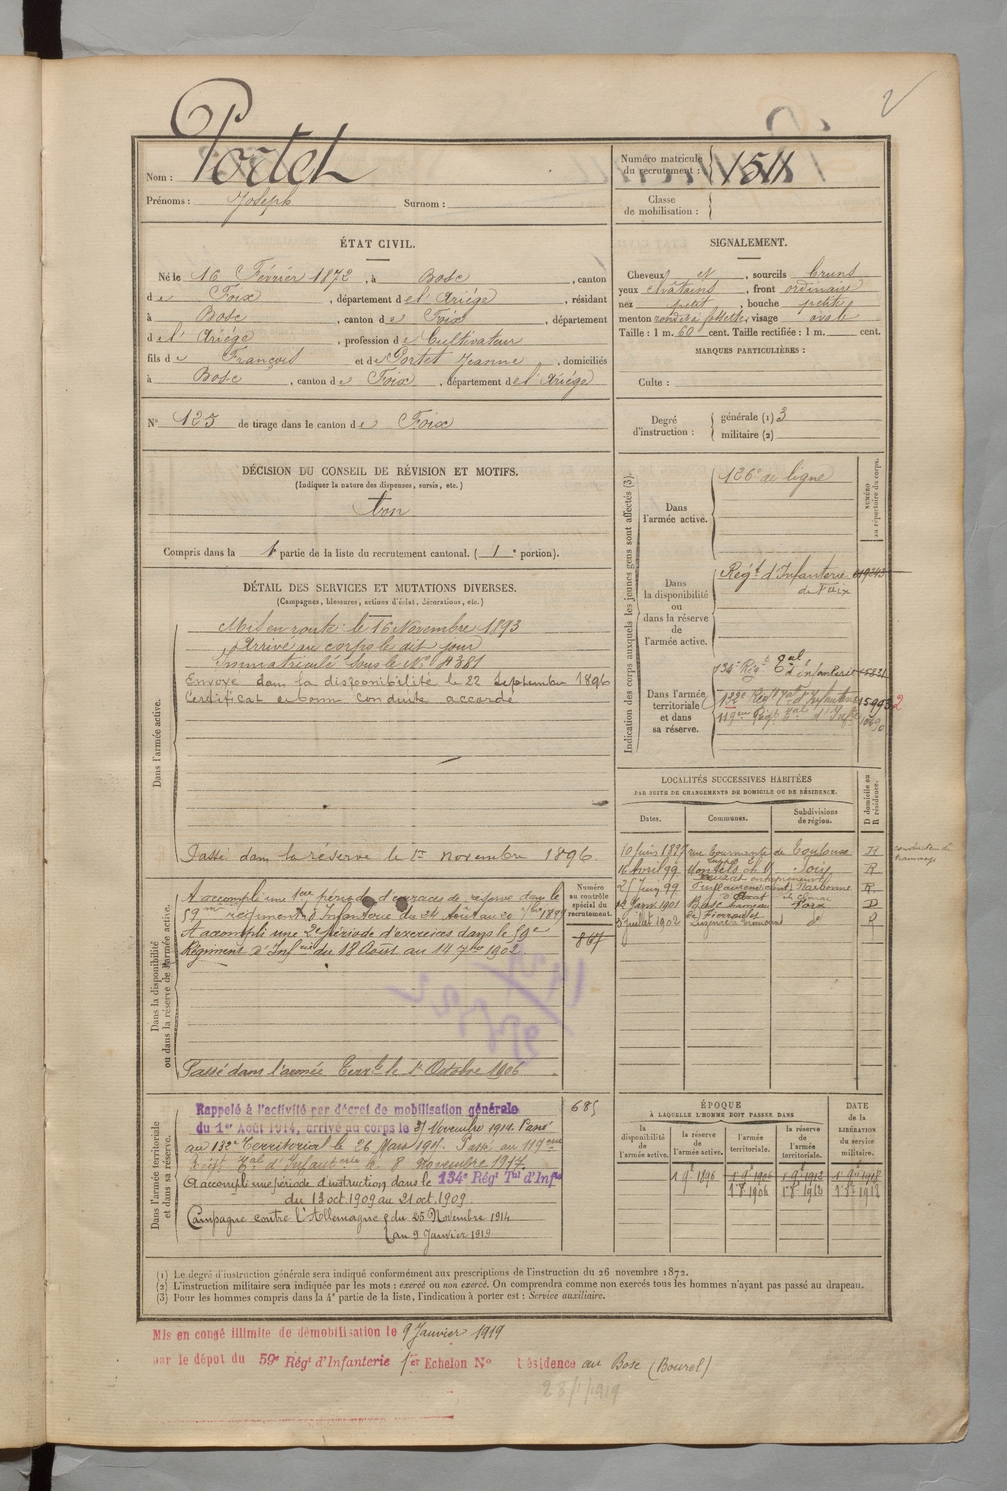 2
Portet
Nom :
Prénoms : Joseph Surnom :
Numéro matricule du recrutement : 1511
Classe de mobilisation :
ÉTAT CIVIL.
Né le 16 Février 1872, à Bosc, canton
de Foix, département de l'Ariège, résidant
à Bosc, canton de Foix, département
de l'Ariège, profession de Cultivateur
fils de François et de Portet Jeanne, domiciliés
à Bosc, canton de Foix, département de l'Ariège
N° 125 de tirage dans le canton de Foix
SIGNALEMENT.
Cheveux et, sourcils bruns
yeux chatains, front ordinaire
nez petit, bouche petite
menton rond à fossette, visage ovale
Taille : 1 m. 60 cent. Taille rectifiée : 1 m. cent.
MARQUES PARTICULIÈRES :
Culte :
Degré d'instruction : générale (1) 3
militaire (2)
DÉCISION DU CONSEIL DE RÉVISION ET MOTIFS.
(Indiquer la nature des dispenses, sursis, etc.)
bon
Compris dans la 1e partie de la liste du recrutement cantonal. (1e portion).
DÉTAIL DES SERVICES ET MUTATIONS DIVERSES.
(Campagnes, blessures, actions d'éclat, décorations, etc.)
Dans l'armée active.
Mis en route le 16 Novembre 1893
Arrivé au corps le dit jour
Immatriculé sous le N°
Envoyé dans la disponibilité le 22 Septembre 1896
Certificat de bonne conduite accordé
Passé dans la réserve le 1er novembre 1896.
Indication des corps auxquels les jeunes gens sont affectés (3).
NUMÉRO au répertoire du corps.
Dans l'armée active.
126e de ligne
Dans la disponibilité ou dans la réserve de l'armée active.
Régt d'Infanterie
de Foix
Dans l'armée territoriale et dans sa réserve.
134e Régt Tal d'Infanterie
132e Régt Tal d'Infanterie 15993
119em Régt Tal d'Infie
LOCALITÉS SUCCESSIVES HABITÉES
PAR SUITE DE CHANGEMENTS DE DOMICILE OU DE RÉSIDENCE.
Dates. Communes. Subdivisions de région. D domicile ou R résidence.
10 Juin 1897 rue Tournante de Toulouse R
16 Avril 99 Foix R
25 Juin 99 Narbonne R
Janv 1901 Bosc hameau Foix D
Juillet 1902 R
Dans la disponibilité ou dans la réserve de l'armée active.
Numéro au contrôle spécial du recrutement.
867
A accompli une 1ère période d'exercices de réserve dans le
59me régiment d'Infanterie du 24 Août au 20 7bre 1899
A accompli une 2e période d'exercices dans le 59e
Régiment d'Infrie du 18 Août au 14 7bre 1902
Passé dans l'armée Terrle le 1r Octobre 1906
Dans l'armée territoriale et dans sa réserve.
685
Rappelé à l'activité par décret de mobilisation générale
du 1er Août 1914, arrivé au corps le Novembre 1914. Passé
au 132e Territorial le 26 Mars 1915. Passé au 119eme
Régt Tal d'Infanterie le 8 Novembre 1917.
A accompli une période d'instruction dans le 134e Régt Tal d'Infie
du 13 oct. 1909 au 21 oct. 1909
Campagne contre l'Allemagne du 25 Novembre 1914
au 9 Janvier 1919
ÉPOQUE
À LAQUELLE L'HOMME DOIT PASSER DANS
la disponibilité de l'armée active. la réserve de l'armée active. l'armée territoriale. la réserve de l'armée territoriale.
DATE de la LIBÉRATION du service militaire.
1 9e 1896 1 9e 1906 1 9e 1912 1 9e 1918
(1) Le degré d'instruction générale sera indiqué conformément aux prescriptions de l'instruction du 26 novembre 1872.
(2) L'instruction militaire sera indiquée par les mots : exercé ou non exercé. On comprendra comme non exercés tous les hommes n'ayant pas passé au drapeau.
(3) Pour les hommes compris dans la 4e partie de la liste, l'indication à porter est : Service auxiliaire.
Mis en congé illimité de démobilisation le 9 Janvier 1919
par le dépôt du 59e Régt d'Infanterie 1er Echelon N° résidence au Bosc (Bourel)
28/1/1919